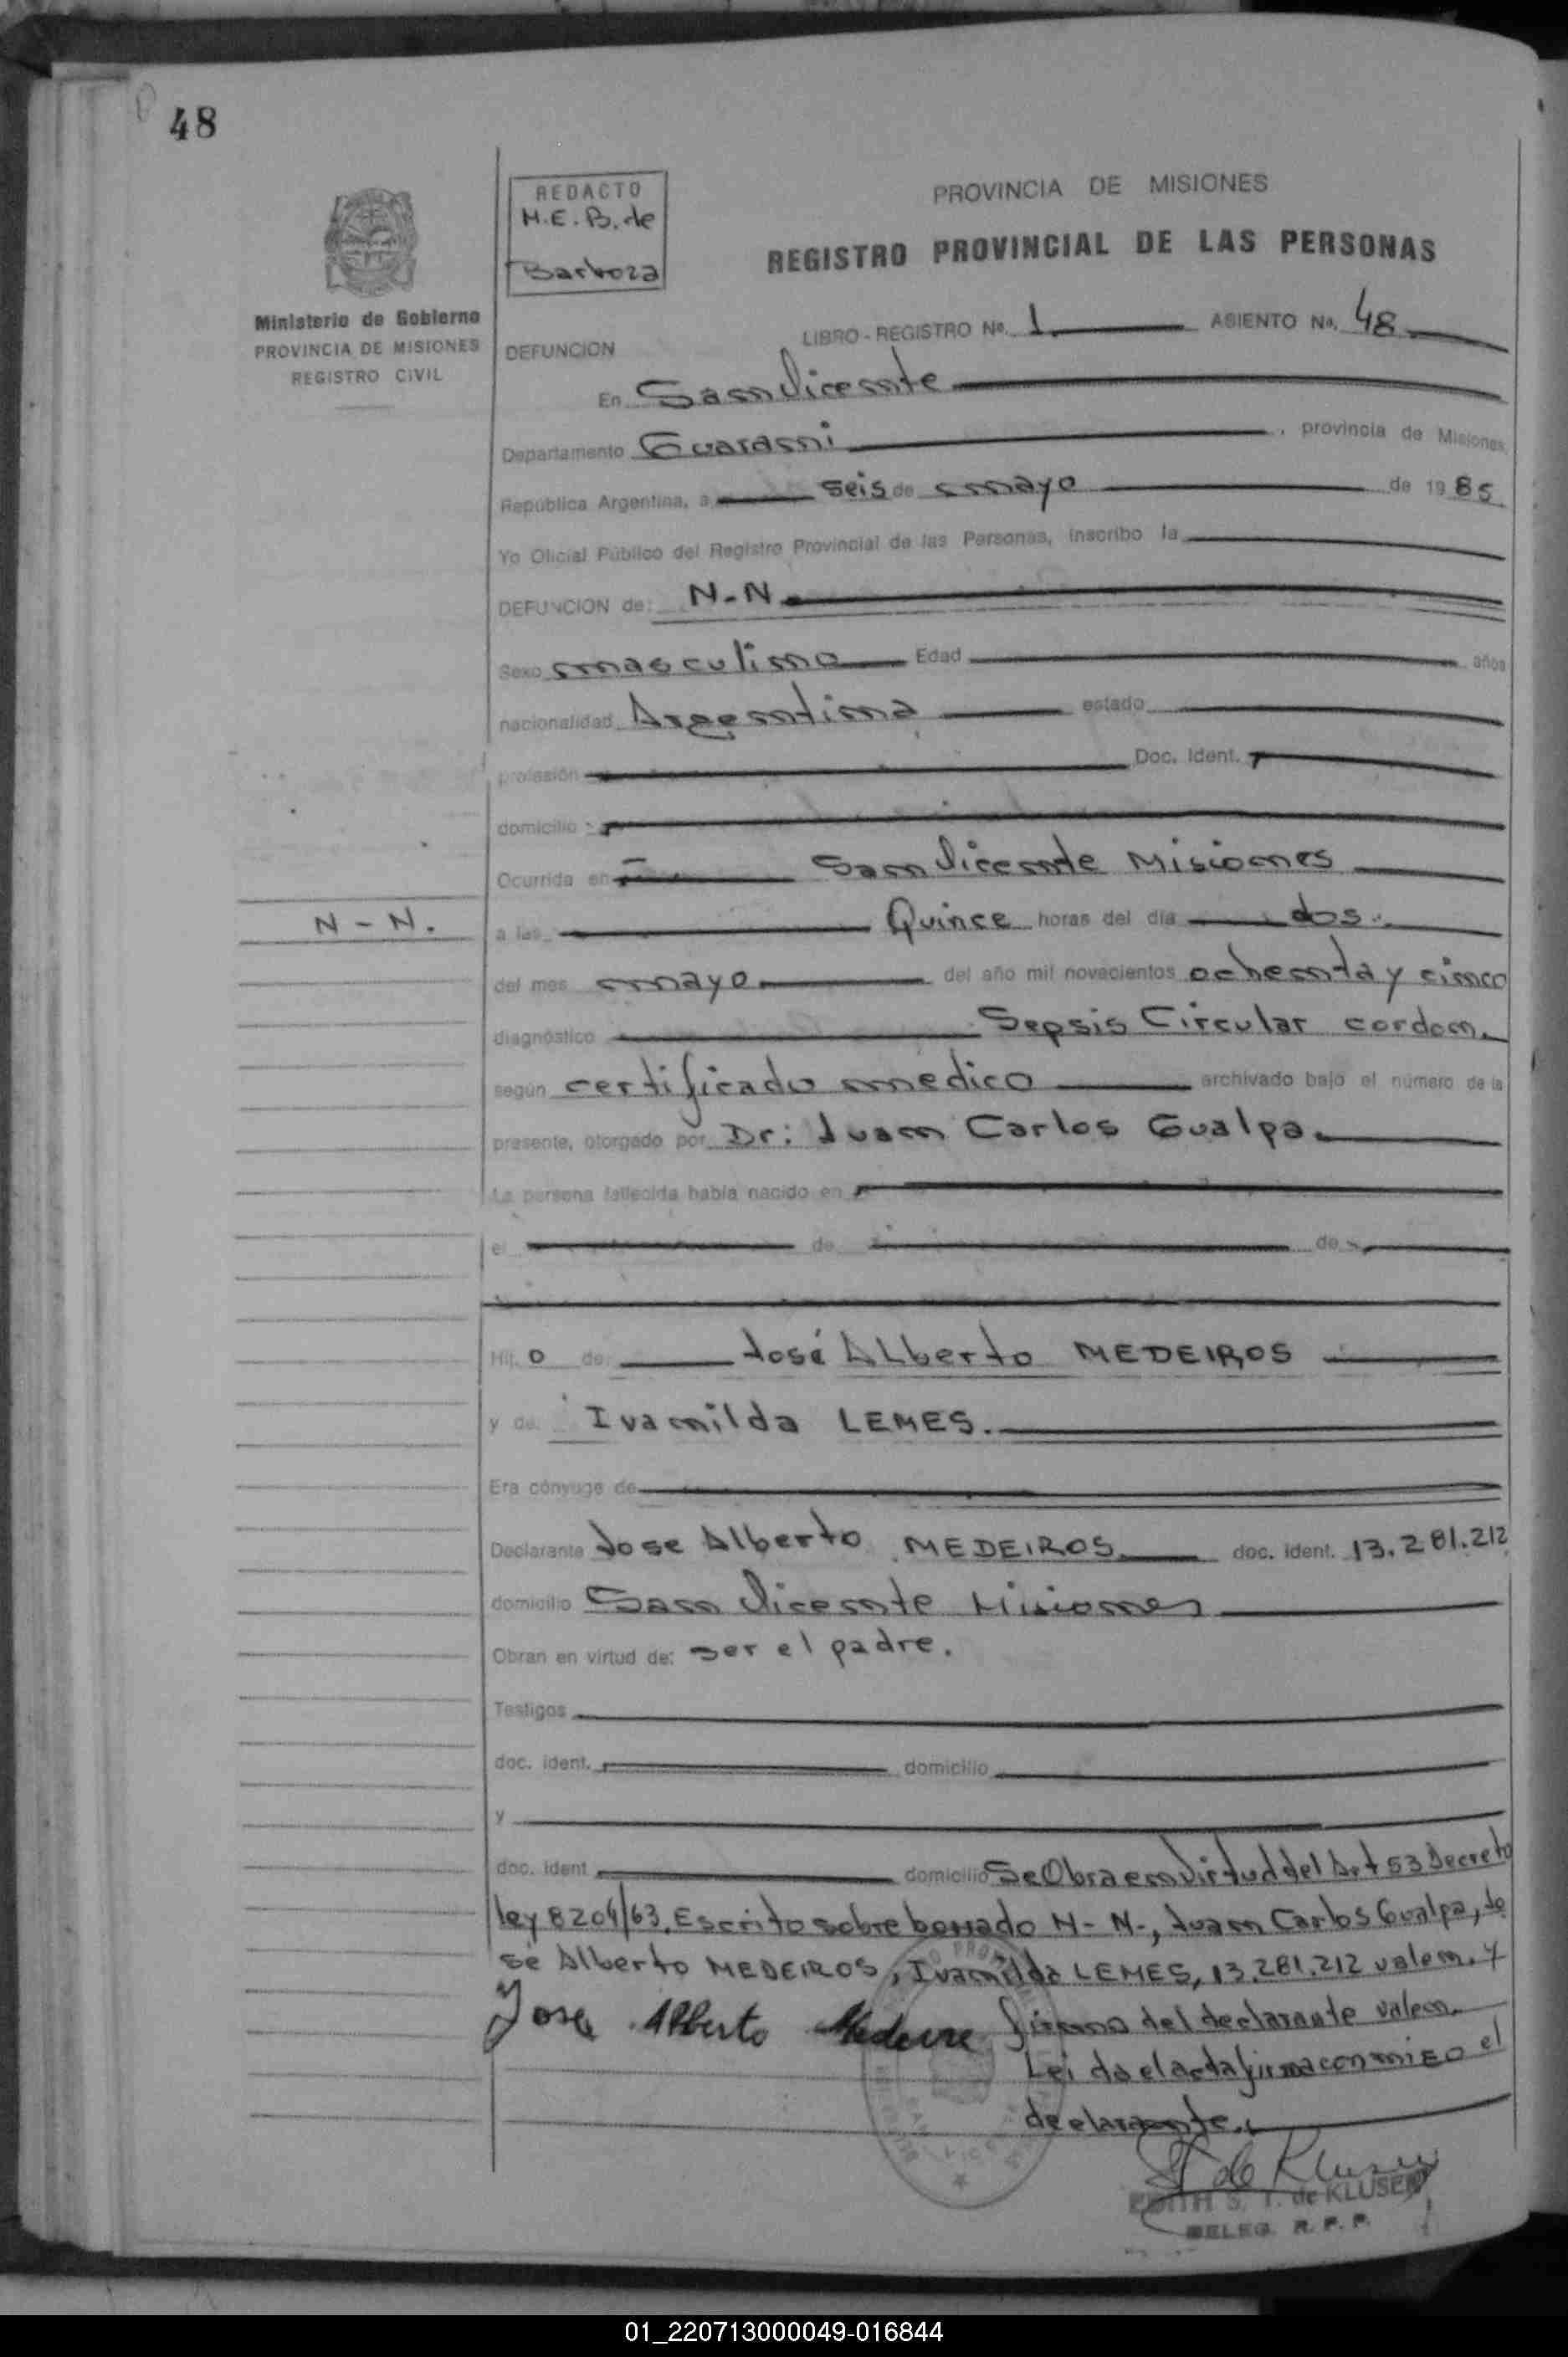 48
REDACTO
M.E.B. de
Barboza
Ministerio de Gobierno
PROVINCIA DE MISIONES
REGISTRO CIVIL
PROVINCIA DE MISIONES
REGISTRO PROVINCIAL DE LAS PERSONAS
LIBRO - REGISTRO Nº. 1 ASIENTO Nº. 48
DEFUNCION
En San Vicente
Departamento Guarani , provincia de Misiones,
República Argentina, a seis de mayo de 1985
Yo Oficial Público del Registro Provincial de las Personas, inscribo la
DEFUNCION de: N-N
Sexo masculino Edad años
nacionalidad Argentina estado
profesión Doc. Ident.
domicilio
Ocurrida en San Vicente Misiones
N-N.
a las Quince horas del día dos.
del mes mayo del año mil novecientos ochenta y cinco
diagnóstico Sepsis Circular cordon.
según certificado medico archivado bajo el número de la
presente, otorgado por Dr: Juan Carlos Gualpa.
La persona fallecida había nacido en
el de de
Hij o de: José Alberto MEDEIROS
y de Ivanilda LEMES.
Era cónyuge de
Declarante Jose Alberto MEDEIROS doc. ident. 13.281.212
domicilio San Vicente Misiones
Obran en virtud de: ser el padre.
Testigos
doc. ident. domicilio
y
doc. ident domicilio Se Obra en Virtud del Art 53 Decreto
ley 8204/63. Escrito sobre borrado N-N-, Juan Carlos Gualpa, Jo
sé Alberto MEDEIROS, Ivanilda LEMES, 13.281.212 valen. y
Jose Alberto firma del declarante valen.
Leida el acta firma con migo el
declarante.
EDITH S. T. de KLUSER
DELEG. R. P. P.
01_220713000049-016844